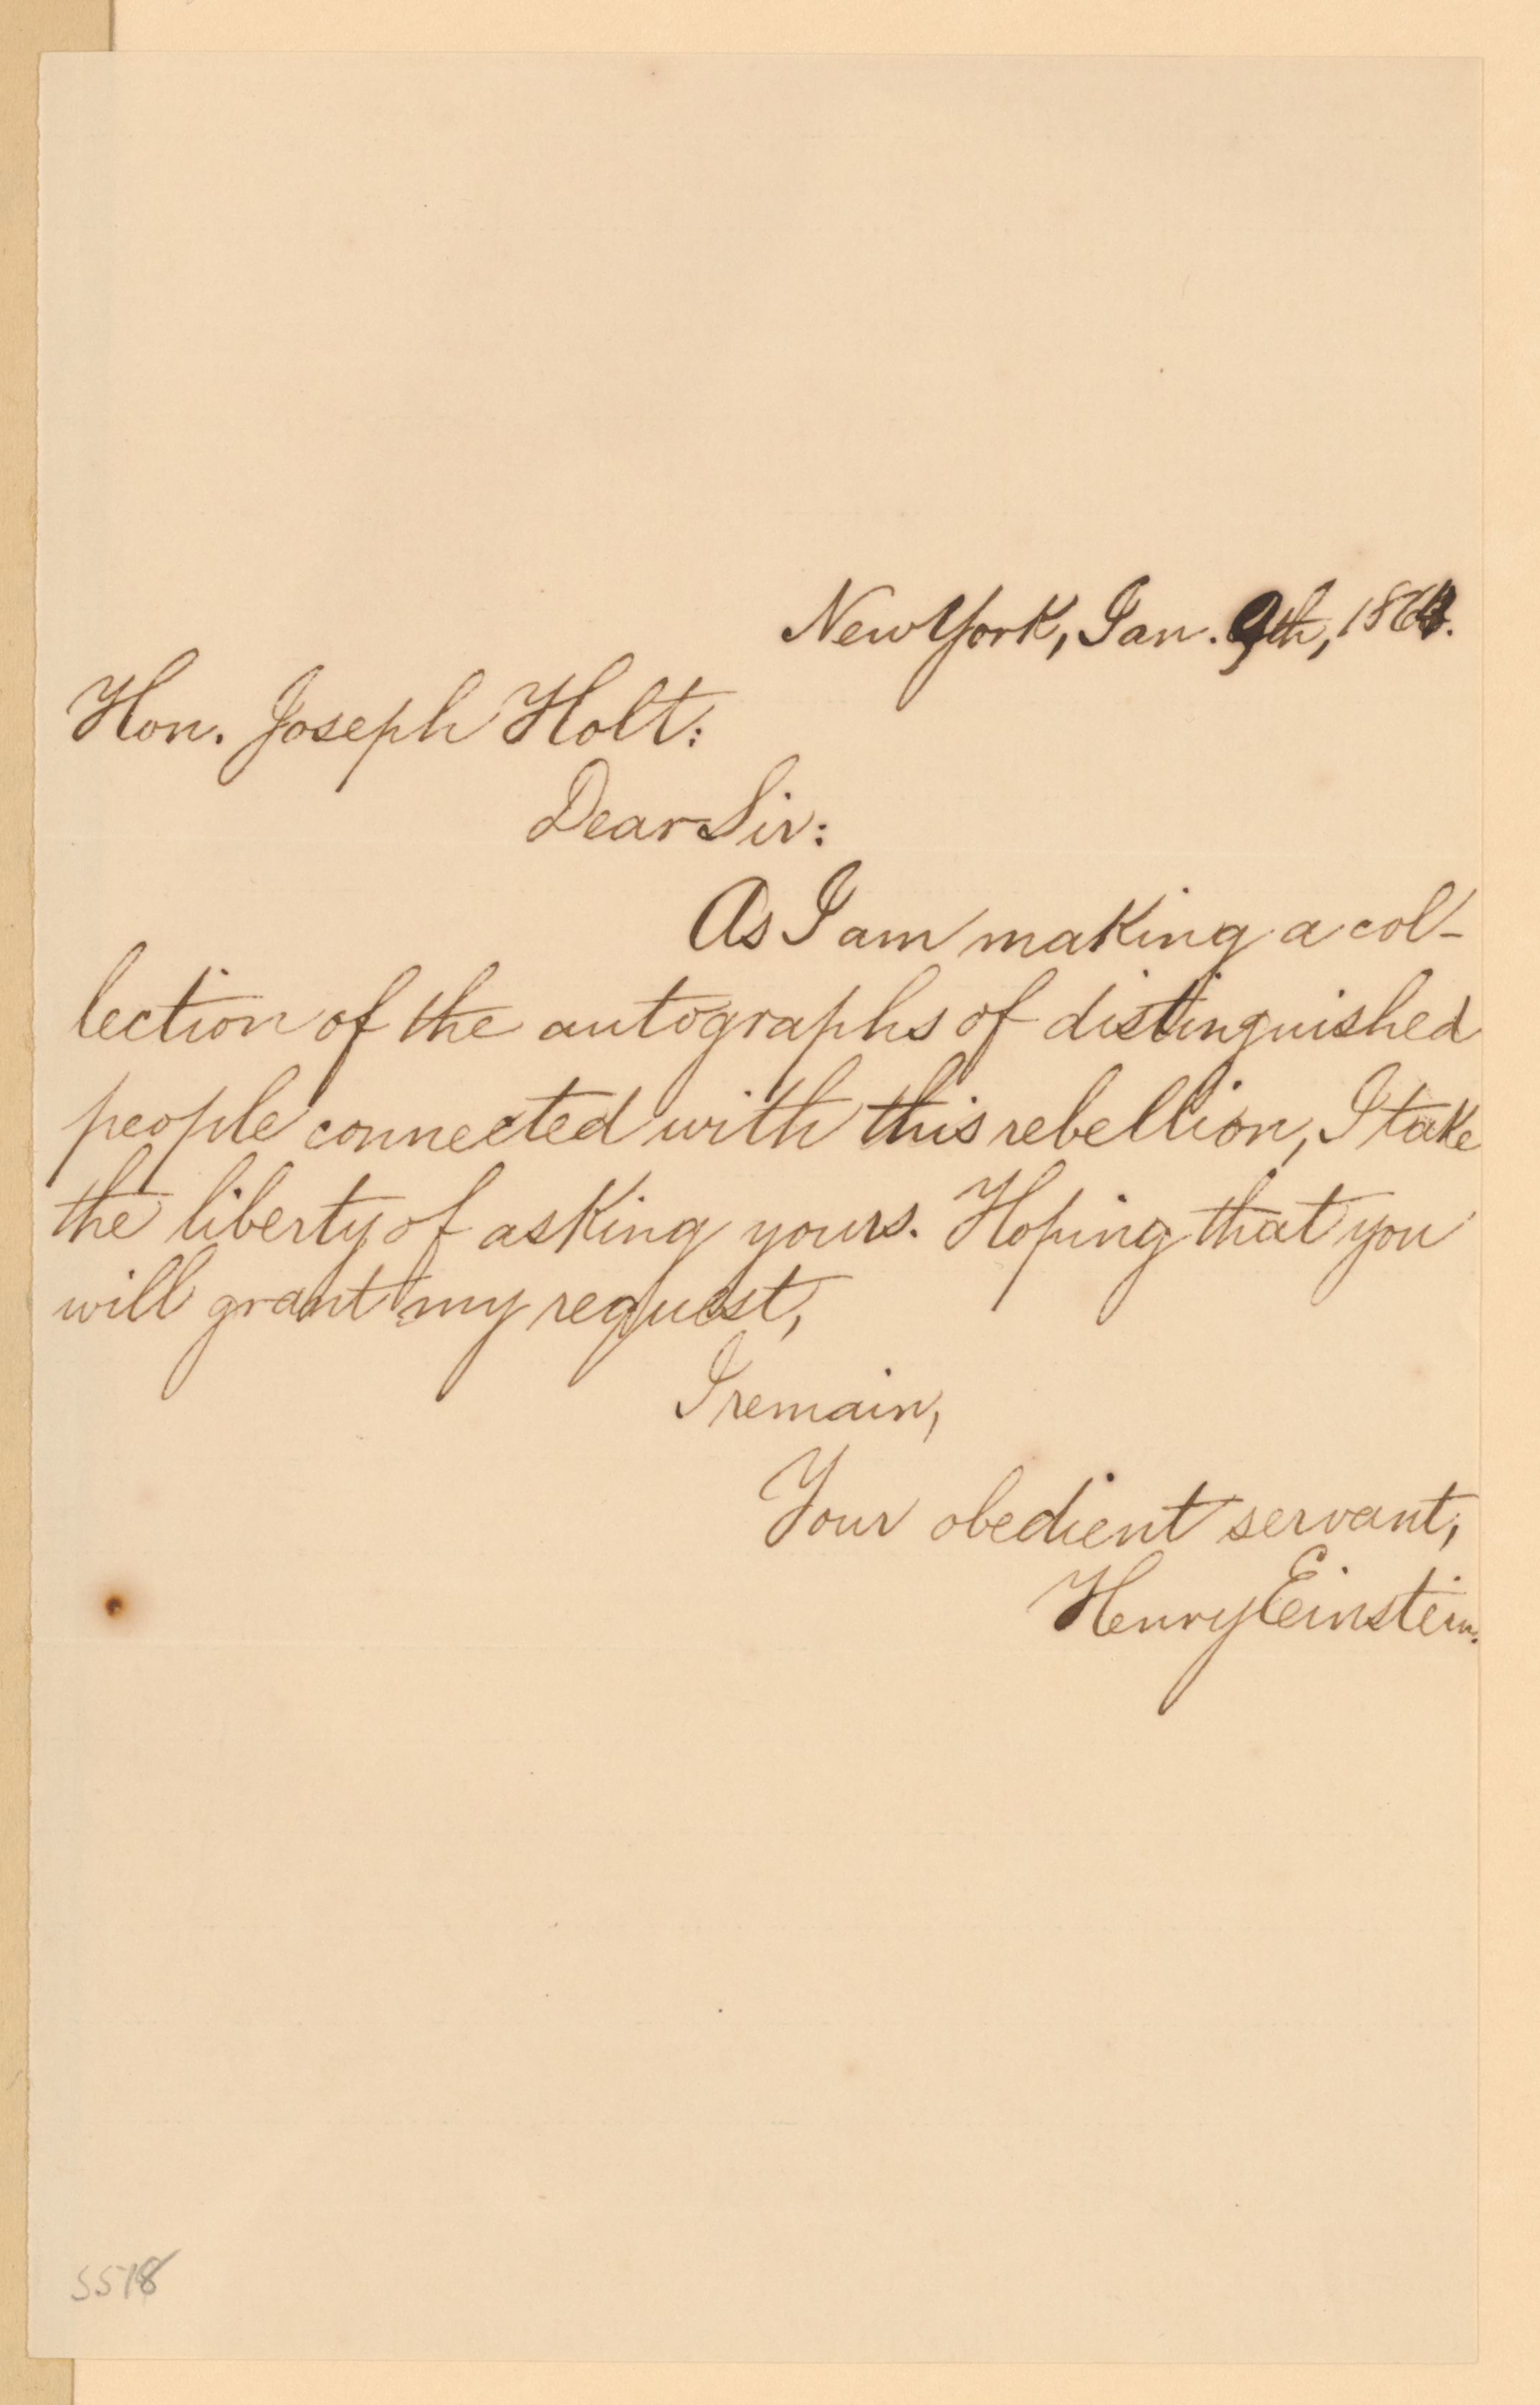 New York, Jan. 9th, 1864.
Hon. Joseph Holt:
Dear Sir:
As I am making a col-
lection of the autographs of distinguished
people connected with this rebellion, I take
the liberty of asking yours. Hoping that you
will grant my request,
I remain,
Your obedient servant,
Henry Einstein.
5518